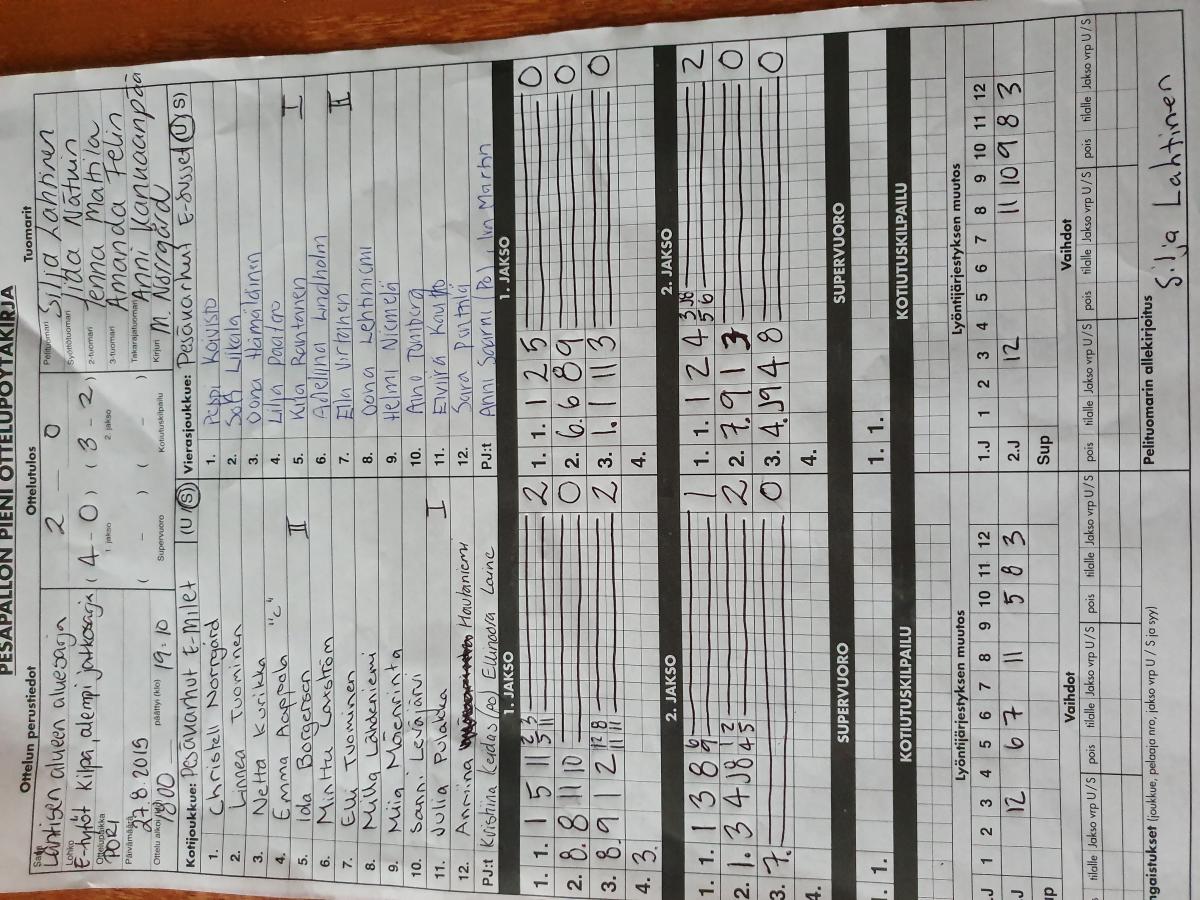 PESÄPALLON PIENI OTTELUPÖYTÄKIRJA
Ottelun perustiedot
Ottelutulos
Tuomarit
Sarja
Läntisen alueen aluesarja
2
0
Pelituomari Silja Lahtinen
Lohko
E-tytöt kilpa, alempi jatkosarja
( 4 - 0 ) ( 3 - 2 )
1. jakso
2. jakso
Syöttötuomari Iida Nätkin
2-tuomari Jenna Mattila
Ottelupaikka
PORI
3-tuomari Amanda Felin
Päivämäärä
27.8.2015
( - ) ( - )
Supervuoro
Kotiutuskilpailu
Takarajatuomari Anni Kanuaanpää
Ottelu alkoi (klo) 1800 päättyi (klo) 19:10
Kirjuri M. Norrgård
Kotijoukkue: Pesävarhut E-Milet (U/S)
Vierasjoukkue: Pesävarhut E-Susset (U/S)
1. Christell Norrgård
1. Peppi Koivisto
2. Linnea Tuominen
2. Sofi Liikala
3. Netta Kurikka
3. Oona Hämäläinen
4. Emma Aarpala "C"
4. Lilja Paatero
5. Iida Borgersen II
5. Kita Rantanen I
6. Minttu Lanström
6. Adeliina Lindholm
7. Elli Tuominen
7. Ella Virtanen II
8. Milla Lähdeniemi
8. Oona Lehtiniemi
9. Miia Mäenrinta
9. Helmi Niemelä
10. Sanni Leväjärvi
10. Aino Tunberg
11. Julia Pulakka I
11. Elviira Koutto
12. Anniina Hautaniemi
12. Sara Penttilä
PJ:t Kristiina Keidas (PO) Ellinoora Laine
PJ:t Anni Saarni (Po), Iin Martin
1. JAKSO
1. JAKSO
1. 1. 1 5 11 2 3 5 11 2
1. 1. 1 2 5 0
2. 8. 8 11 10 0
2. 6. 6 8 9 0
3. 8. 9 1 2 12 8 11 11 2
3. 1. 1 11 3 0
4. 3.
4.
2. JAKSO
2. JAKSO
1. 1. 1 3 8 6 9 1
1. 1. 1 2 4 3 J8 5 6 2
2. 1. 3 4 J8 1 2 4 5 2
2. 7. 9 1 3 0
3. 7. 0
3. 4. J9 4 8 0
4.
4.
SUPERVUORO
SUPERVUORO
1. 1.
1. 1.
KOTIUTUSKILPAILU
KOTIUTUSKILPAILU
Lyöntijärjestyksen muutos
Lyöntijärjestyksen muutos
.J 1 2 3 4 5 6 7 8 9 10 11 12
1.J 1 2 3 4 5 6 7 8 9 10 11 12
.J 12 6 7 11 5 8 3
2.J 12 11 10 9 8 3
up
Sup
Vaihdot
Vaihdot
pois tilalle Jakso vrp U/S pois tilalle Jakso vrp U/S pois tilalle Jakso vrp U/S
pois tilalle Jakso vrp U/S pois tilalle Jakso vrp U/S pois tilalle Jakso vrp U/S
ngaistukset (joukkue, pelaaja nro, jakso vrp U / S ja syy)
Pelituomarin allekirjoitus
Silja Lahtinen